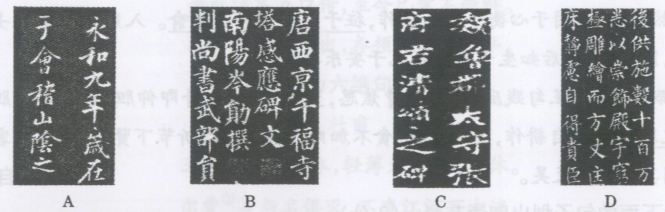 永和九年歲在
于會稽山陰之
A
唐西京千福寺
塔感應碑文
南陽岑勛撰
判尚書武部員
B
魏魯郡太守張
府君清頌之碑
C
後供施數十百万
悉以崇飾殿宇窮
極雕繪而方丈匡
床靜慮自得貴臣
D